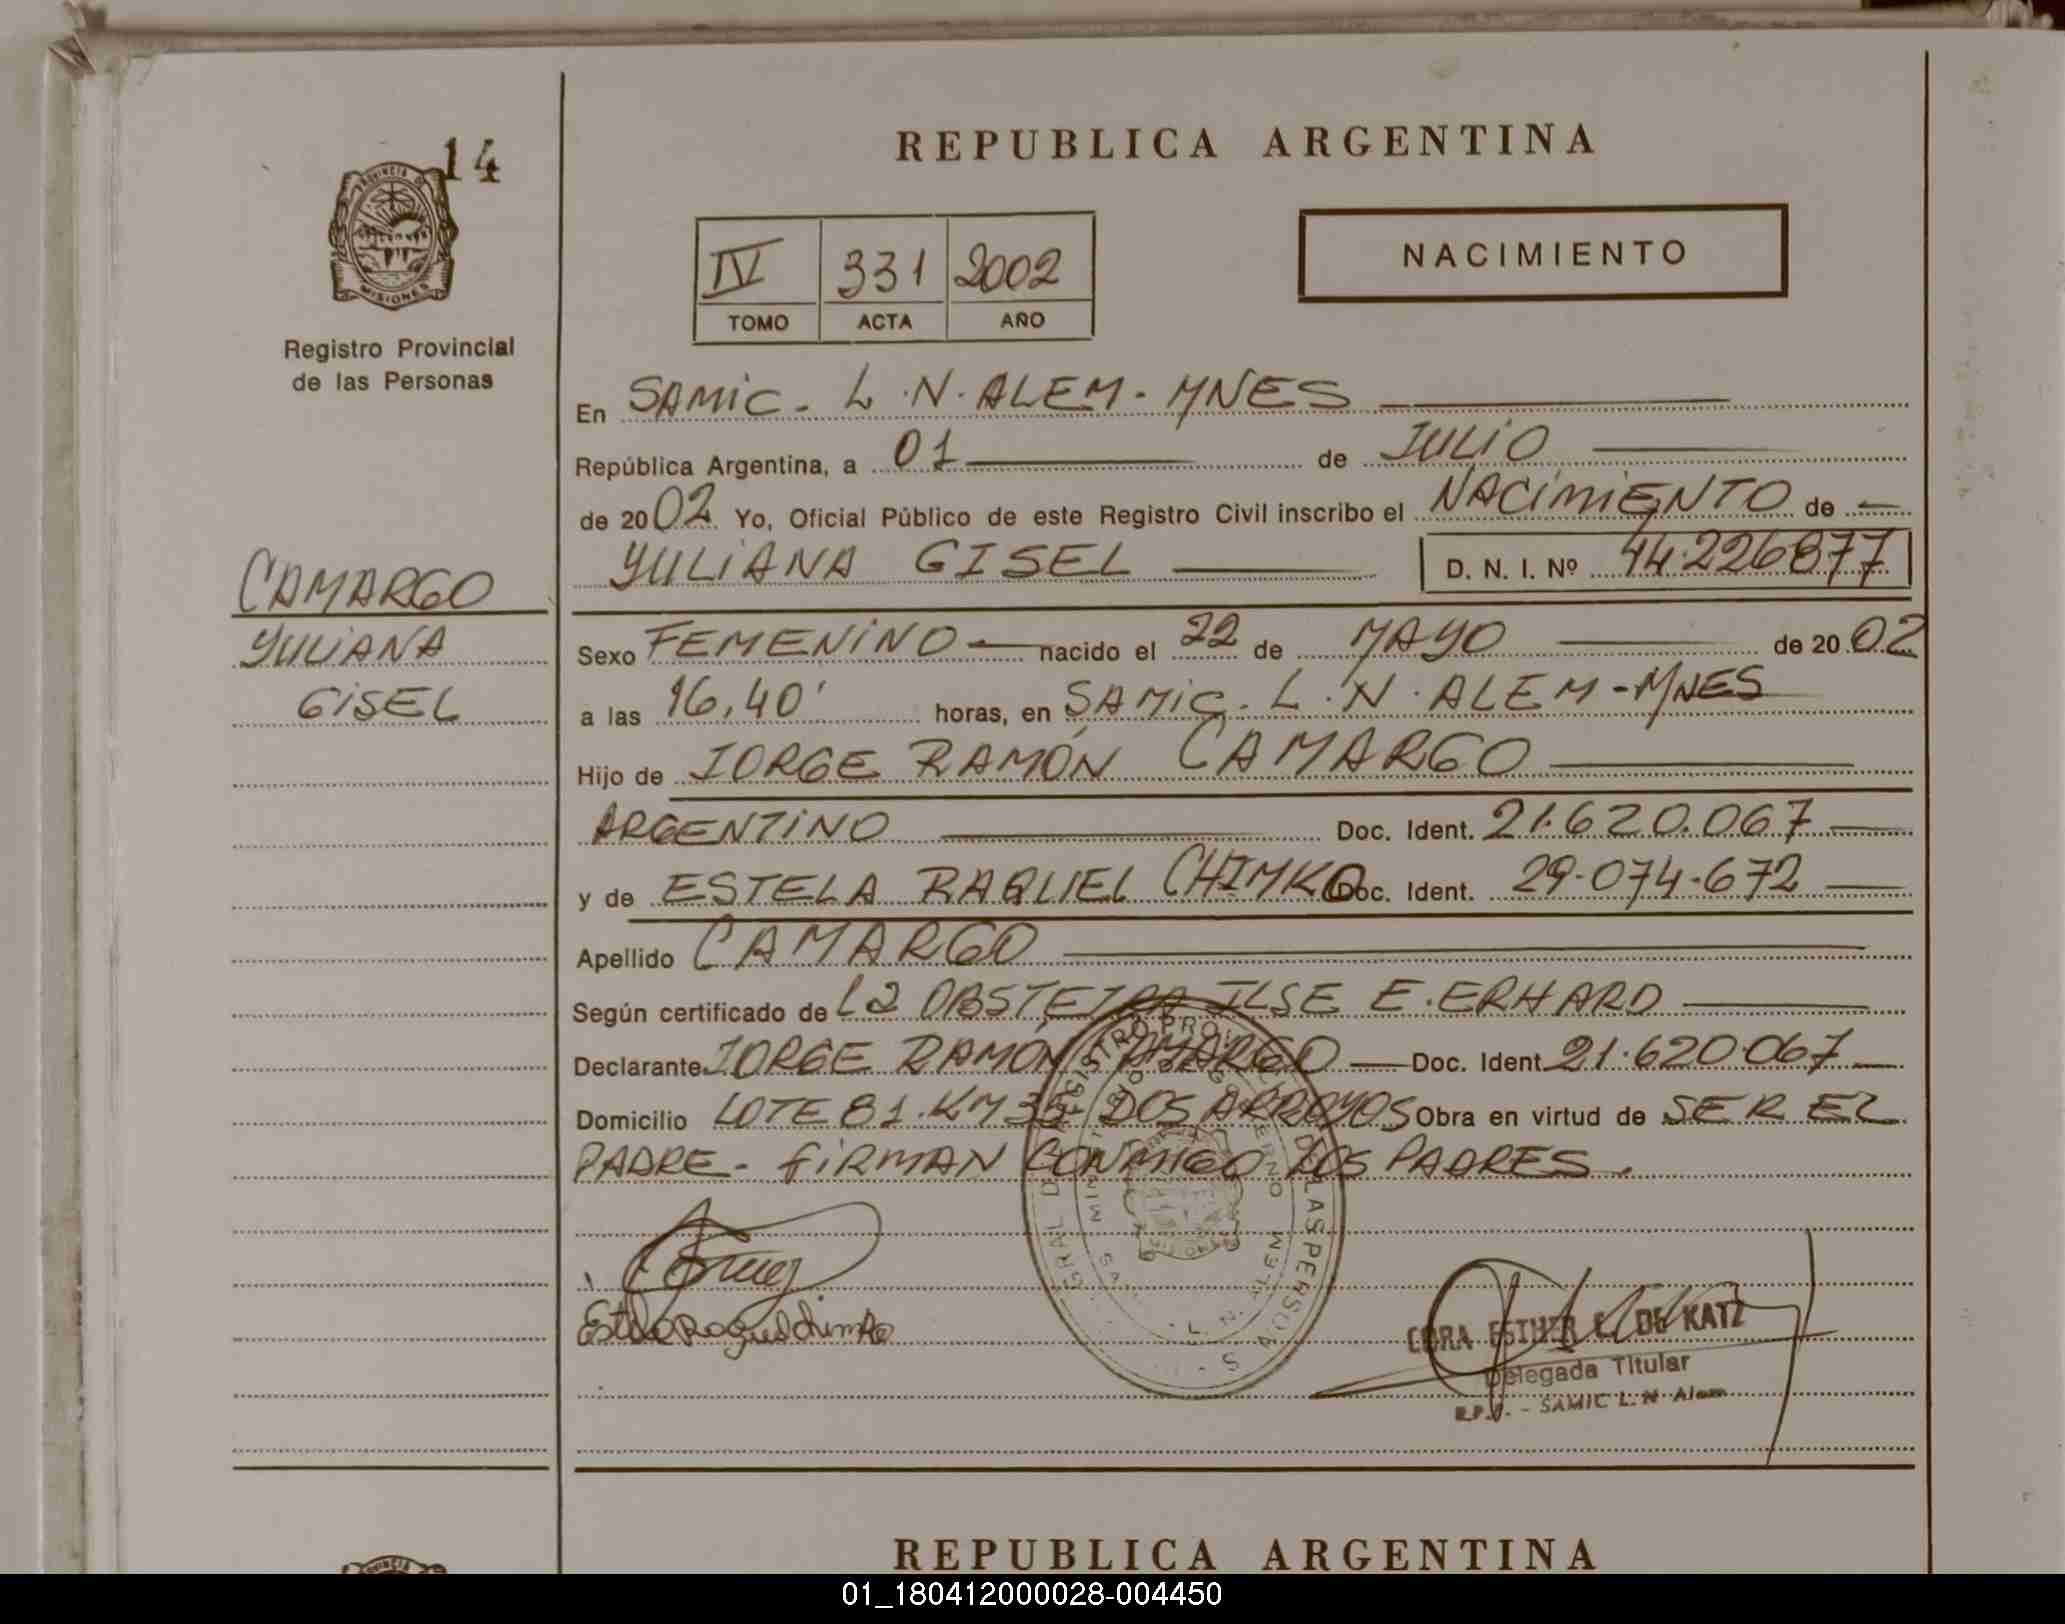 14
PROVINCIA DE
MISIONES
Registro Provincial
de las Personas
CAMARGO
YULIANA
GISEL
REPUBLICA ARGENTINA
IV 331 2002
TOMO ACTA AÑO
NACIMIENTO
En SAMIC. L.N. ALEM. MNES
República Argentina, a 01 de JULIO
de 2002 Yo, Oficial Público de este Registro Civil inscribo el NACIMIENTO de
YULIANA GISEL D. N. I. Nº 44.226877
Sexo FEMENINO nacido el 22 de MAYO de 2002
a las 16,40' horas, en SAMIC. L.N. ALEM-MNES
Hijo de JORGE RAMÓN CAMARGO
ARGENTINO Doc. Ident. 21.620.067
y de ESTELA RAQUEL CHIMKO Doc. Ident. 29.074.672
Apellido CAMARGO
Según certificado de La OBSTETRA ILSE E. ERHARD
Declarante JORGE RAMÓN CAMARGO Doc. Ident 21.620.067
Domicilio LOTE 81. KM 35 DOS ARROYOS Obra en virtud de SER EL
PADRE. FIRMAN CONMIGO LOS PADRES.
Estela Raquel Chimko
DE KATZ
Delegada Titular
R.P.P. - SAMIC L. N. Alem
REPUBLICA ARGENTINA
01_180412000028-004450